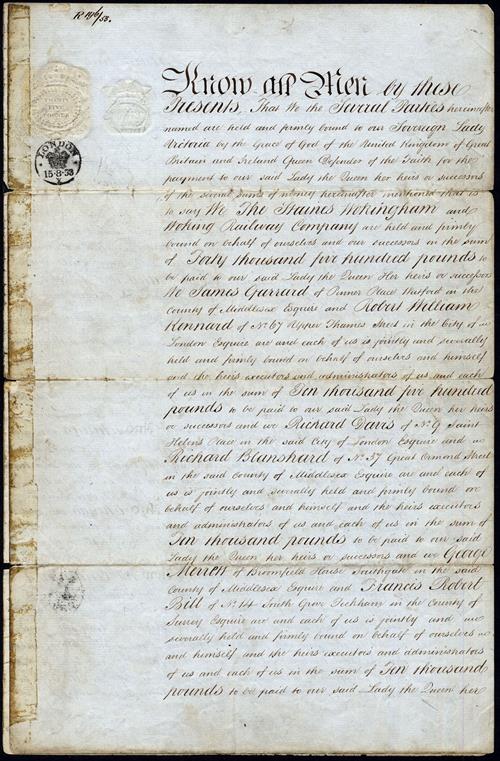 LONDON
15-8-53
Know all Men by these
Presents, That We the Several Parties hereinafter
named are held and firmly bound to our Sovereign Lady
Victoria by the Grace of God of the United Kingdom of Great
Britain and Ireland Queen Defender of the Faith for the
payment to our said Lady the Queen her heirs or successors
of the several sums of money hereinafter mentioned that is
to say We The Staines Wokingham and
Woking Railway Company are held and firmly
bound on behalf of ourselves and our successors in the sum
of Forty thousand five hundred pounds to
be paid to our said Lady the Queen Her heirs or successors
We James Garrard of Pinner Place Watford in the
County of Middlesex Esquire and Robert William
Kennard of No. 67 Upper Thames Street in the City of
London Esquire are and each of us is jointly and severally
held and firmly bound on behalf of ourselves and himself
and the heirs executors and administrators of us and each
of us in the sum of Ten thousand five hundred
pounds to be paid to our said Lady the Queen her heirs
or successors and we Richard Davis of No. 9 Saint
Helens Place in the said City of London Esquire and
Richard Blanshard of No. 37 Great Ormond Street
in the said County of Middlesex Esquire are and each of
us is jointly and severally held and firmly bound on
behalf of ourselves and himself and the heirs executors
and administrators of us and each of us in the sum of
Ten thousand pounds to be paid to our said
Lady the Queen her heirs or successors and we George
of Broomfield House Southgate in the said
County of Middlesex Esquire and Francis Robert
Bill of No. 14 South Grove Peckham in the County of
Surrey Esquire are and each of us is jointly and
severally held and firmly bound on behalf of ourselves
and himself and the heirs executors and administrators
of us and each of us in the sum of Ten thousand
pounds to be paid to our said Lady the Queen her